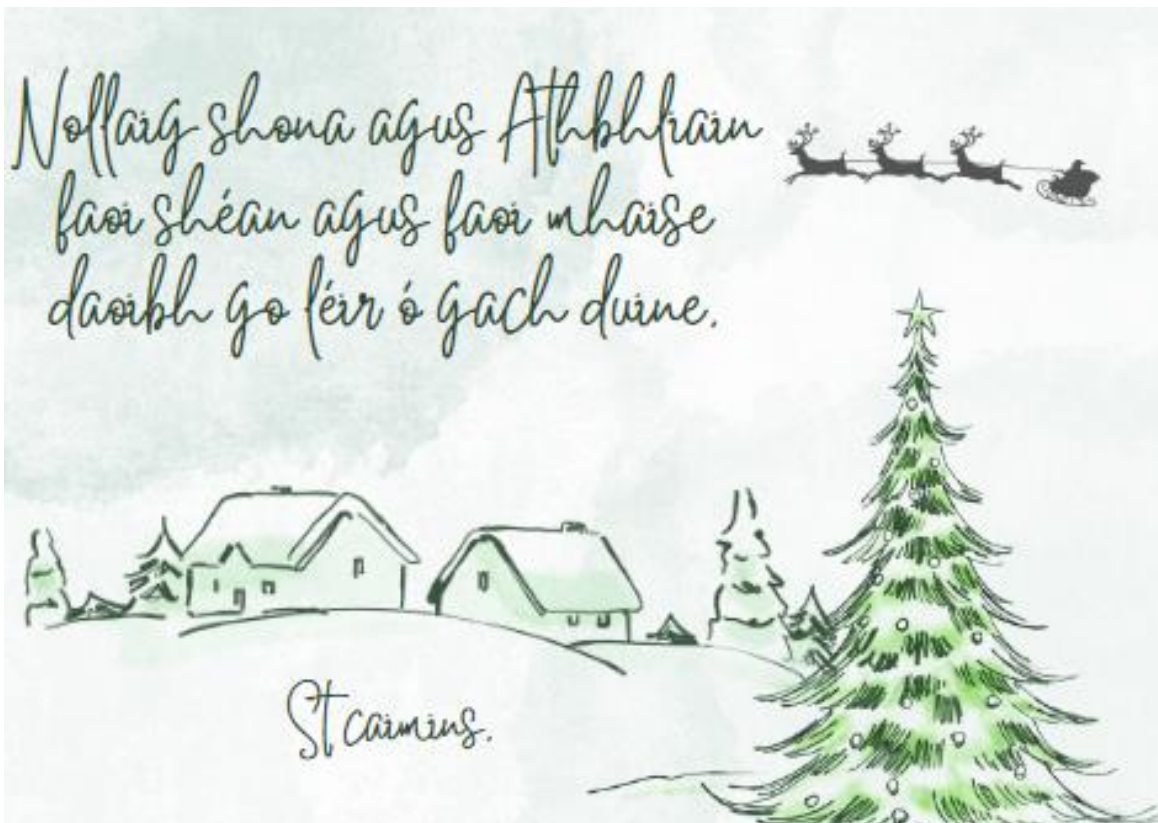 Nollaig shona agus Athbhliain
faoi shéan agus faoi mhaise
daoibh go léir ó gach duine.
St caimins.